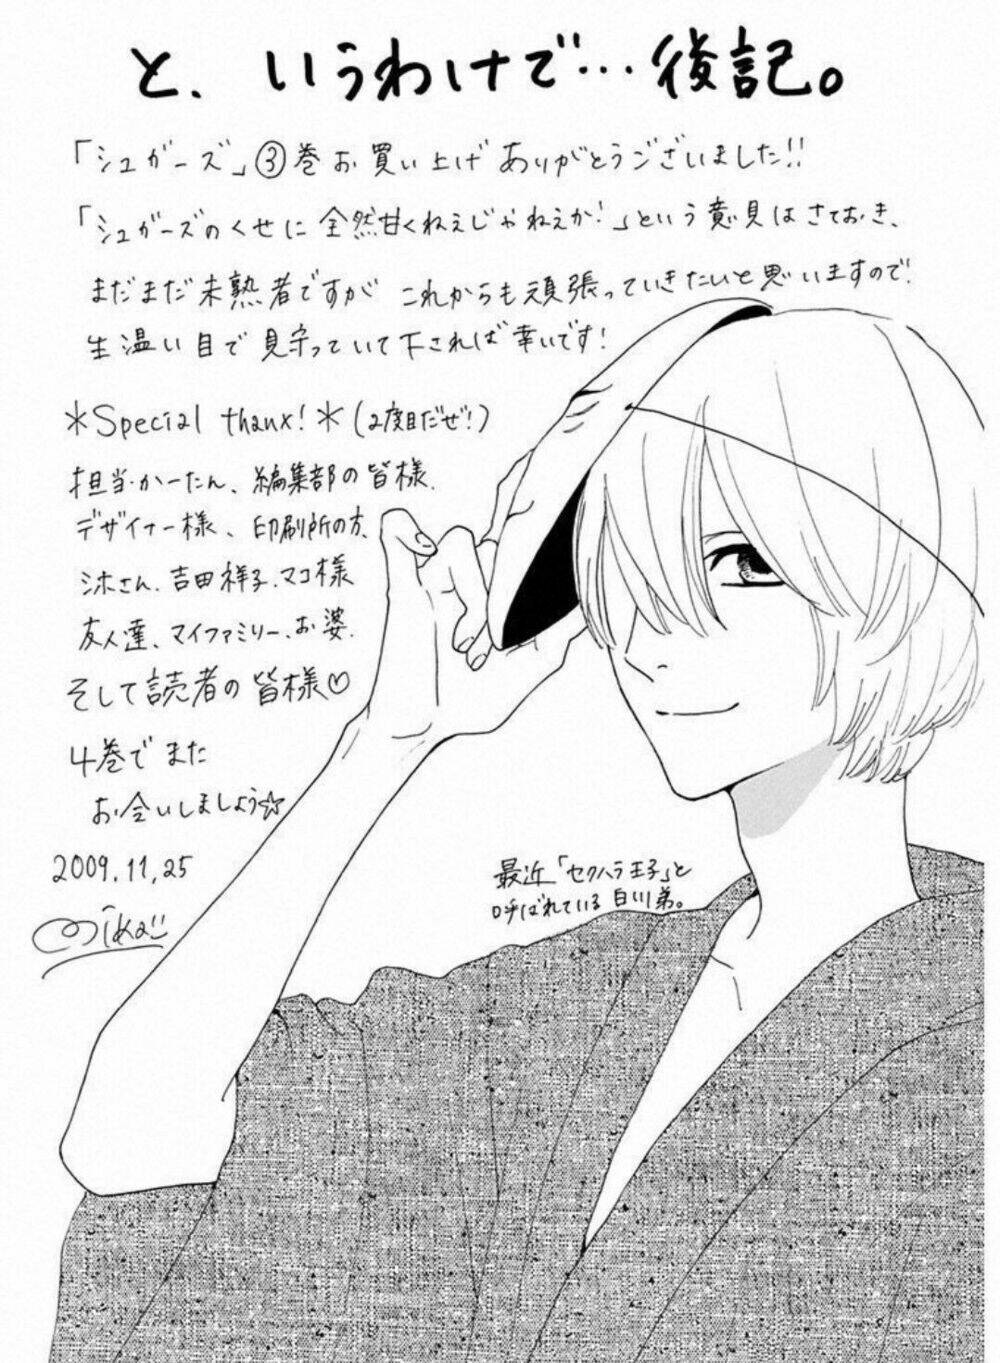 と、いうわけで…後記。
「シュガーズ」③巻お買い上げありがとうございました!!
「シュガーズのくせに全然甘くねぇじゃねえか!」という意見はさておき、
まだまだ未熟者ですが これからも頑張っていきたいと思いますので、
生温い目で見守っていて下されば幸いです!
*Special thanx!*(2度目だぜ!)
担当・かーたん、編集部の皆様、
デザイナー様、印刷所の方、
シホさん、吉田祥子、マコ様
友人達、マイファミリー、お婆、
そして読者の皆様♡
4巻でまた
お会いしましょう☆
2009.11.25
Mika
最近「セクハラ王子」と
呼ばれている白川弟。